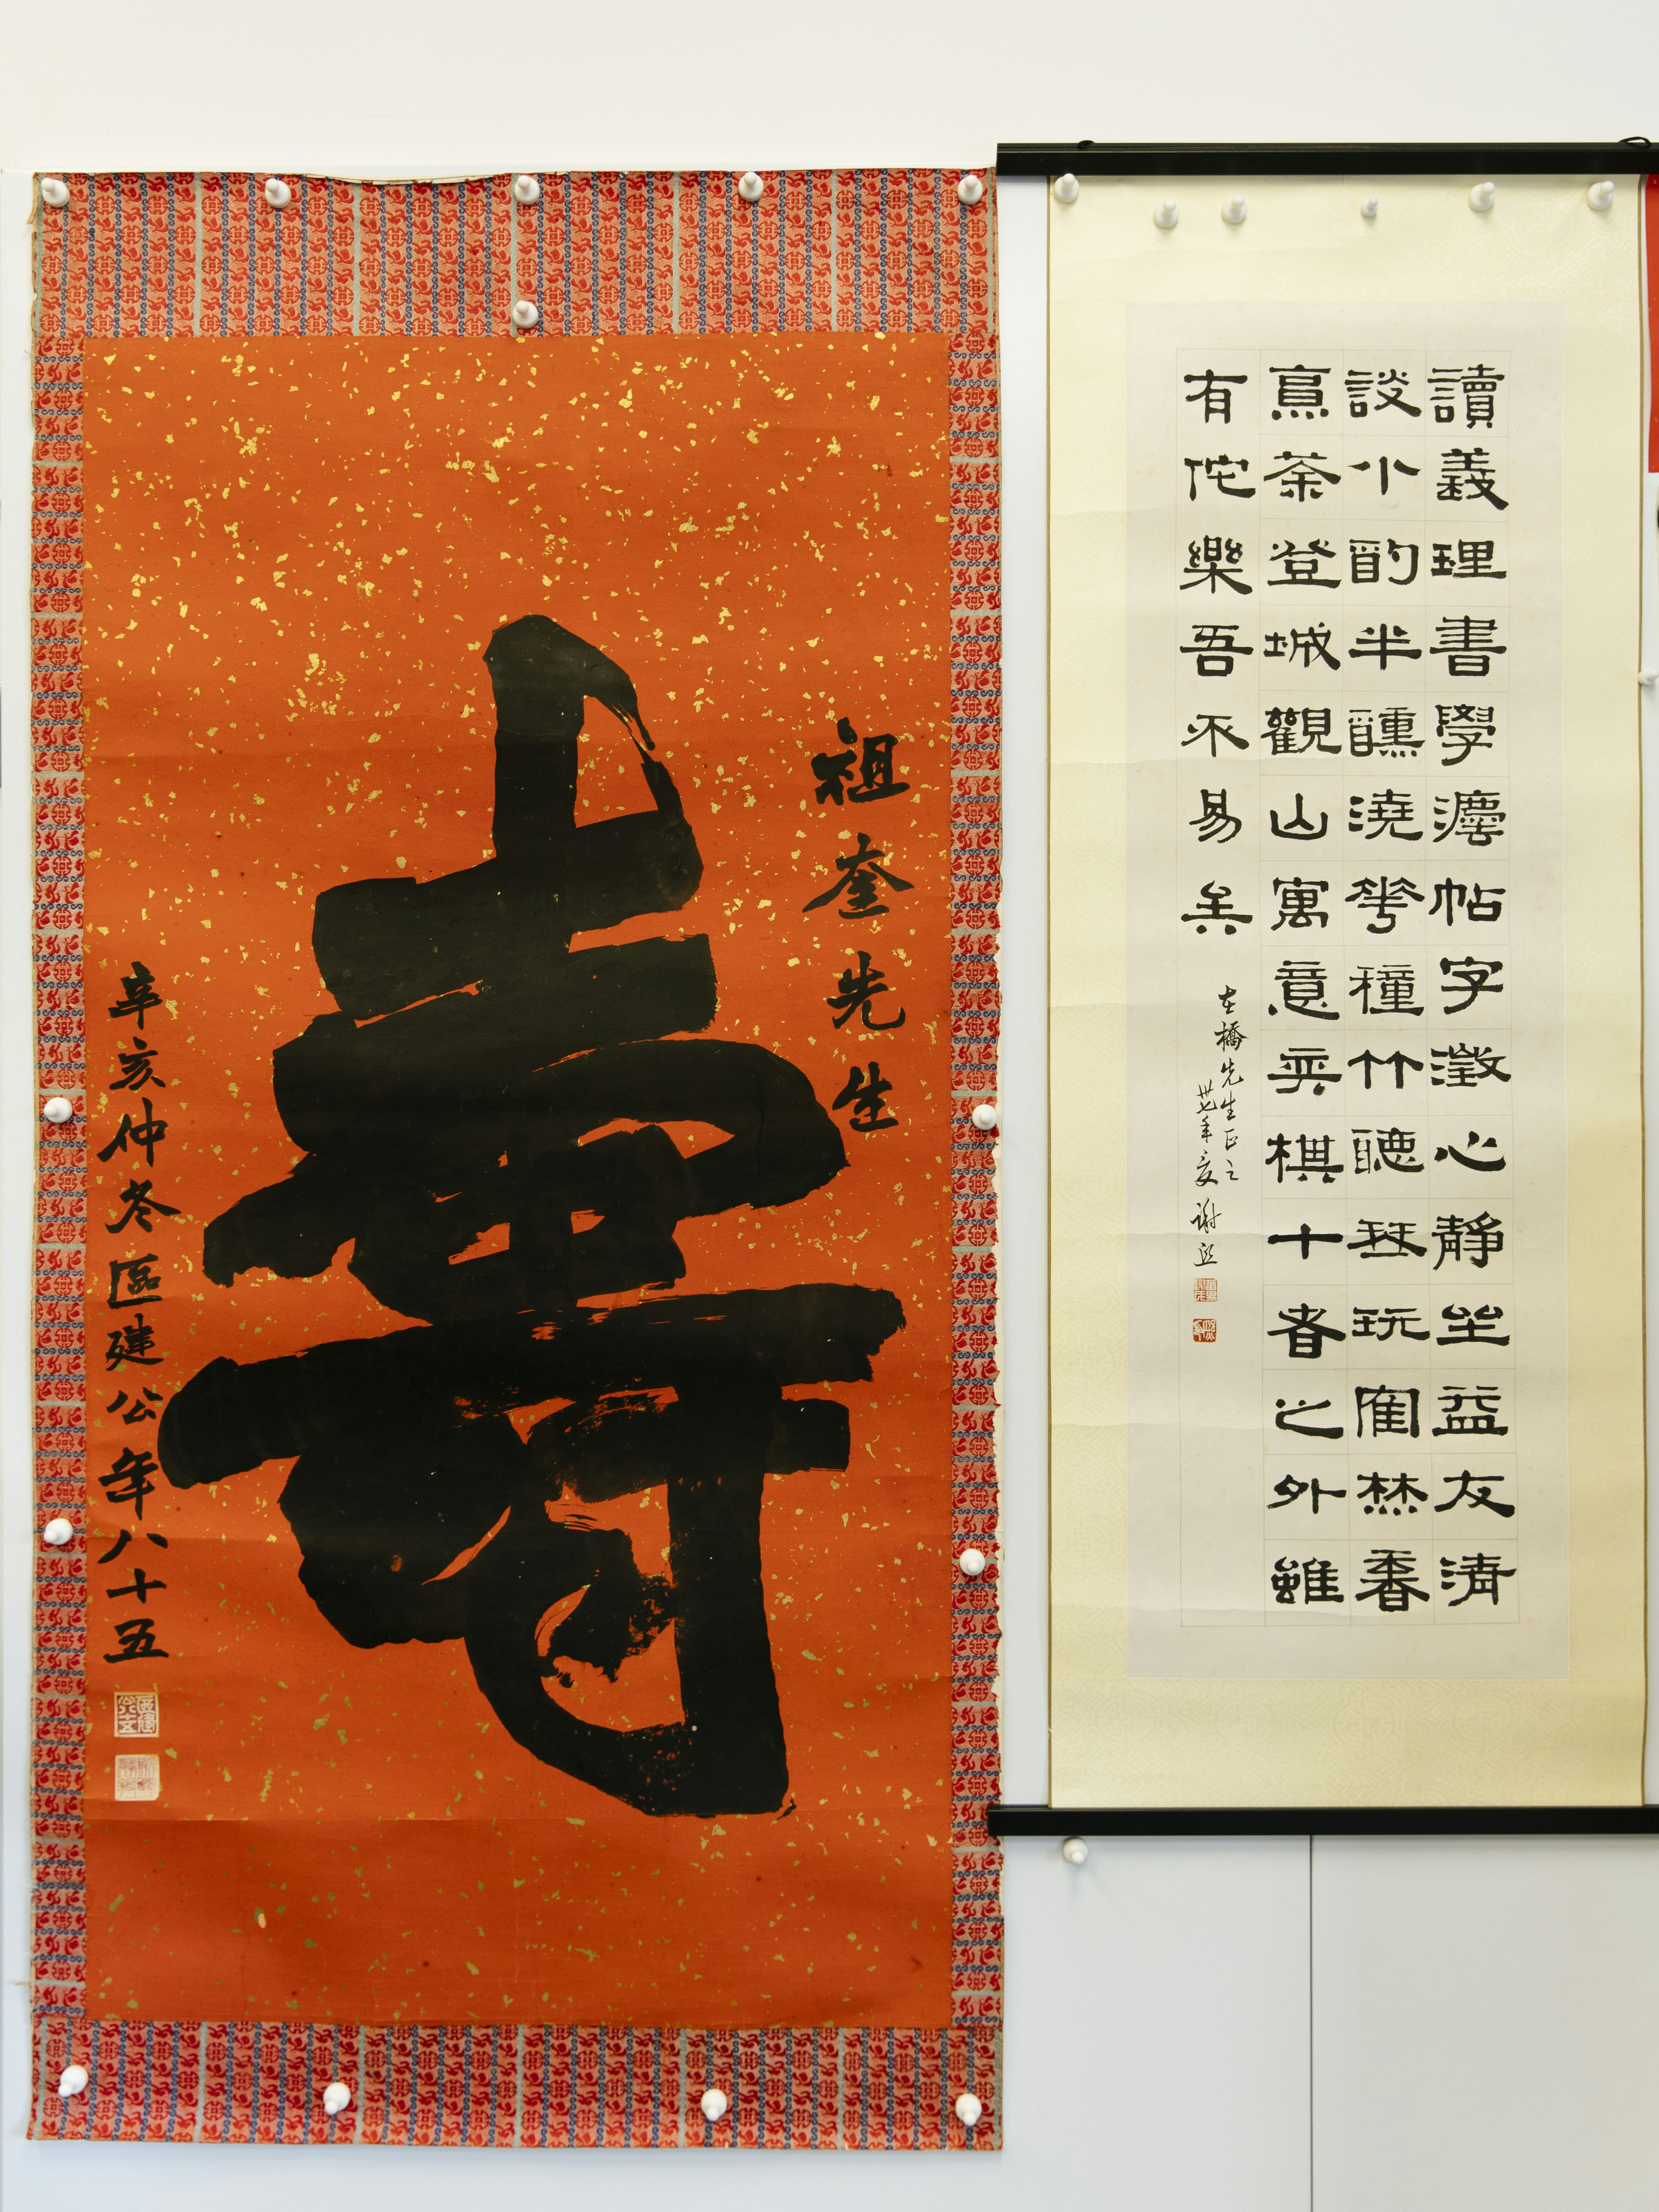 讀義理書學灋帖字澂心靜坐益友清
談小酌半醺澆華種竹聽琴玩寉焚香
烹茶登城觀山寓意弈棋十者之外雖
有佗樂吾不易矣
左橋先生正之
卅七年夏 謝熙
祖奎先生
壽
辛亥仲冬區建公年八十五